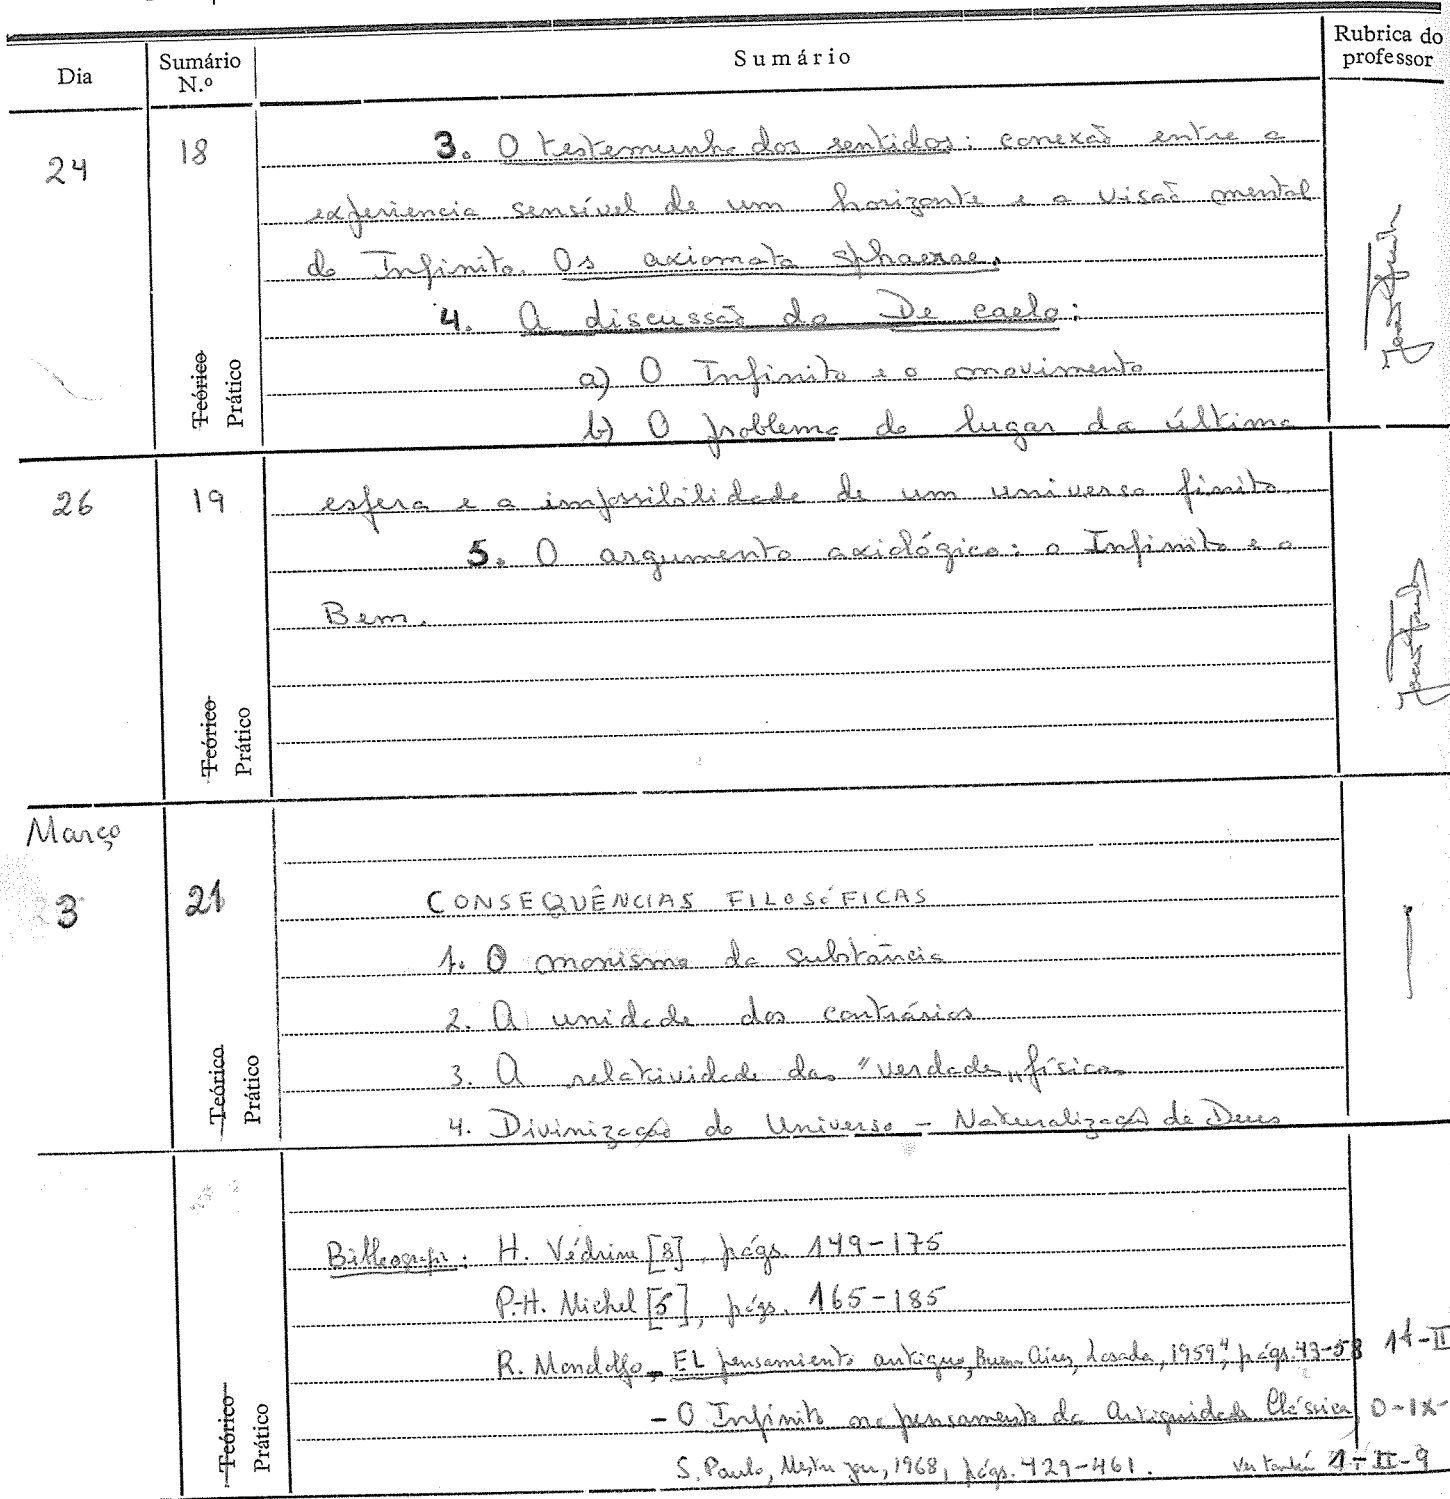 Dia
Sumário N.º
Sumário
Rubrica do professor
24
18
3. O testemunho dos sentidos: conexão entre a
experiencia sensível de um horizonte e a visão mental
do Infinito. Os axiomata sphaerae.
4. A discussão do De caelo:
a) O Infinito e o movimento
b) O problema do lugar da última
Teórico
Prático
26
19
esfera e a impossibilidade de um universo finito
5. O argumento axiológico: o Infinito e o
Bem.
Teórico
Prático
Março
3
21
CONSEQUÊNCIAS FILOSÓFICAS
1. O monismo da substância
2. A unidade dos contrários
3. A relatividade das "verdades" físicas
4. Divinização do Universo - Naturalização de Deus
Teórico
Prático
H. Védrine [8], págs. 149-175
P.-H. Michel [5], págs. 165-185
R. Mondolfo - EL pensamiento antiguo, Buenos Aires, Losada, 1959⁴, págs. 43-58
- O Infinito no pensamento da Antiguidade Clássica,
S. Paulo, Mestre Jou, 1968, págs. 429-461. Ver também 1-II-9
Teórico
Prático